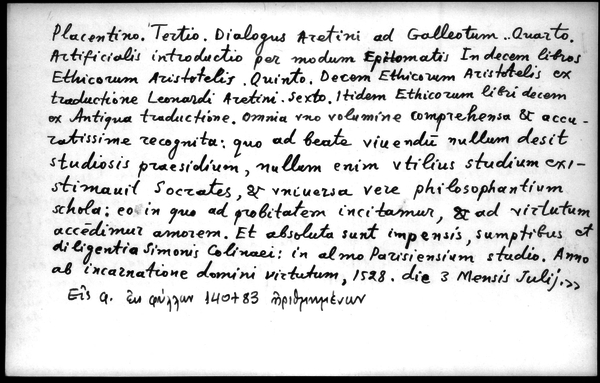 Placentino. Tertio. Dialogus Aretini ad Galleotum.. Quarto.
Artificialis introductio per modum Epitomatis In decem libros
Ethicorum Aristotelis. Quinto. Decem Ethicorum Aristotelis ex
traductione Leonardi Aretini. Sexto. Itidem Ethicorum libri decem
ex Antiqua traductione. Omnia vno volumine comprehensa & accu-
ratissime recognita: quo ad beate viuendū nullum desit
studiosis praesidium, nullum enim vtilius studium exi-
stimauit Socrates, & vniuersa vere philosophantium
schola; eo in quo ad probitatem incitamur, & ad virtutum
accēdimur amorem. Et absoluta sunt impensis, sumptibus et
diligentia Simonis Colinaei: in almo Parisiensium studio. Anno
ab incarnatione domini virtutum, 1528. die 3 Mensis Julij.>>
Εἰς φ. ἐκ φύλλων 140+83 ἠριθμημένων